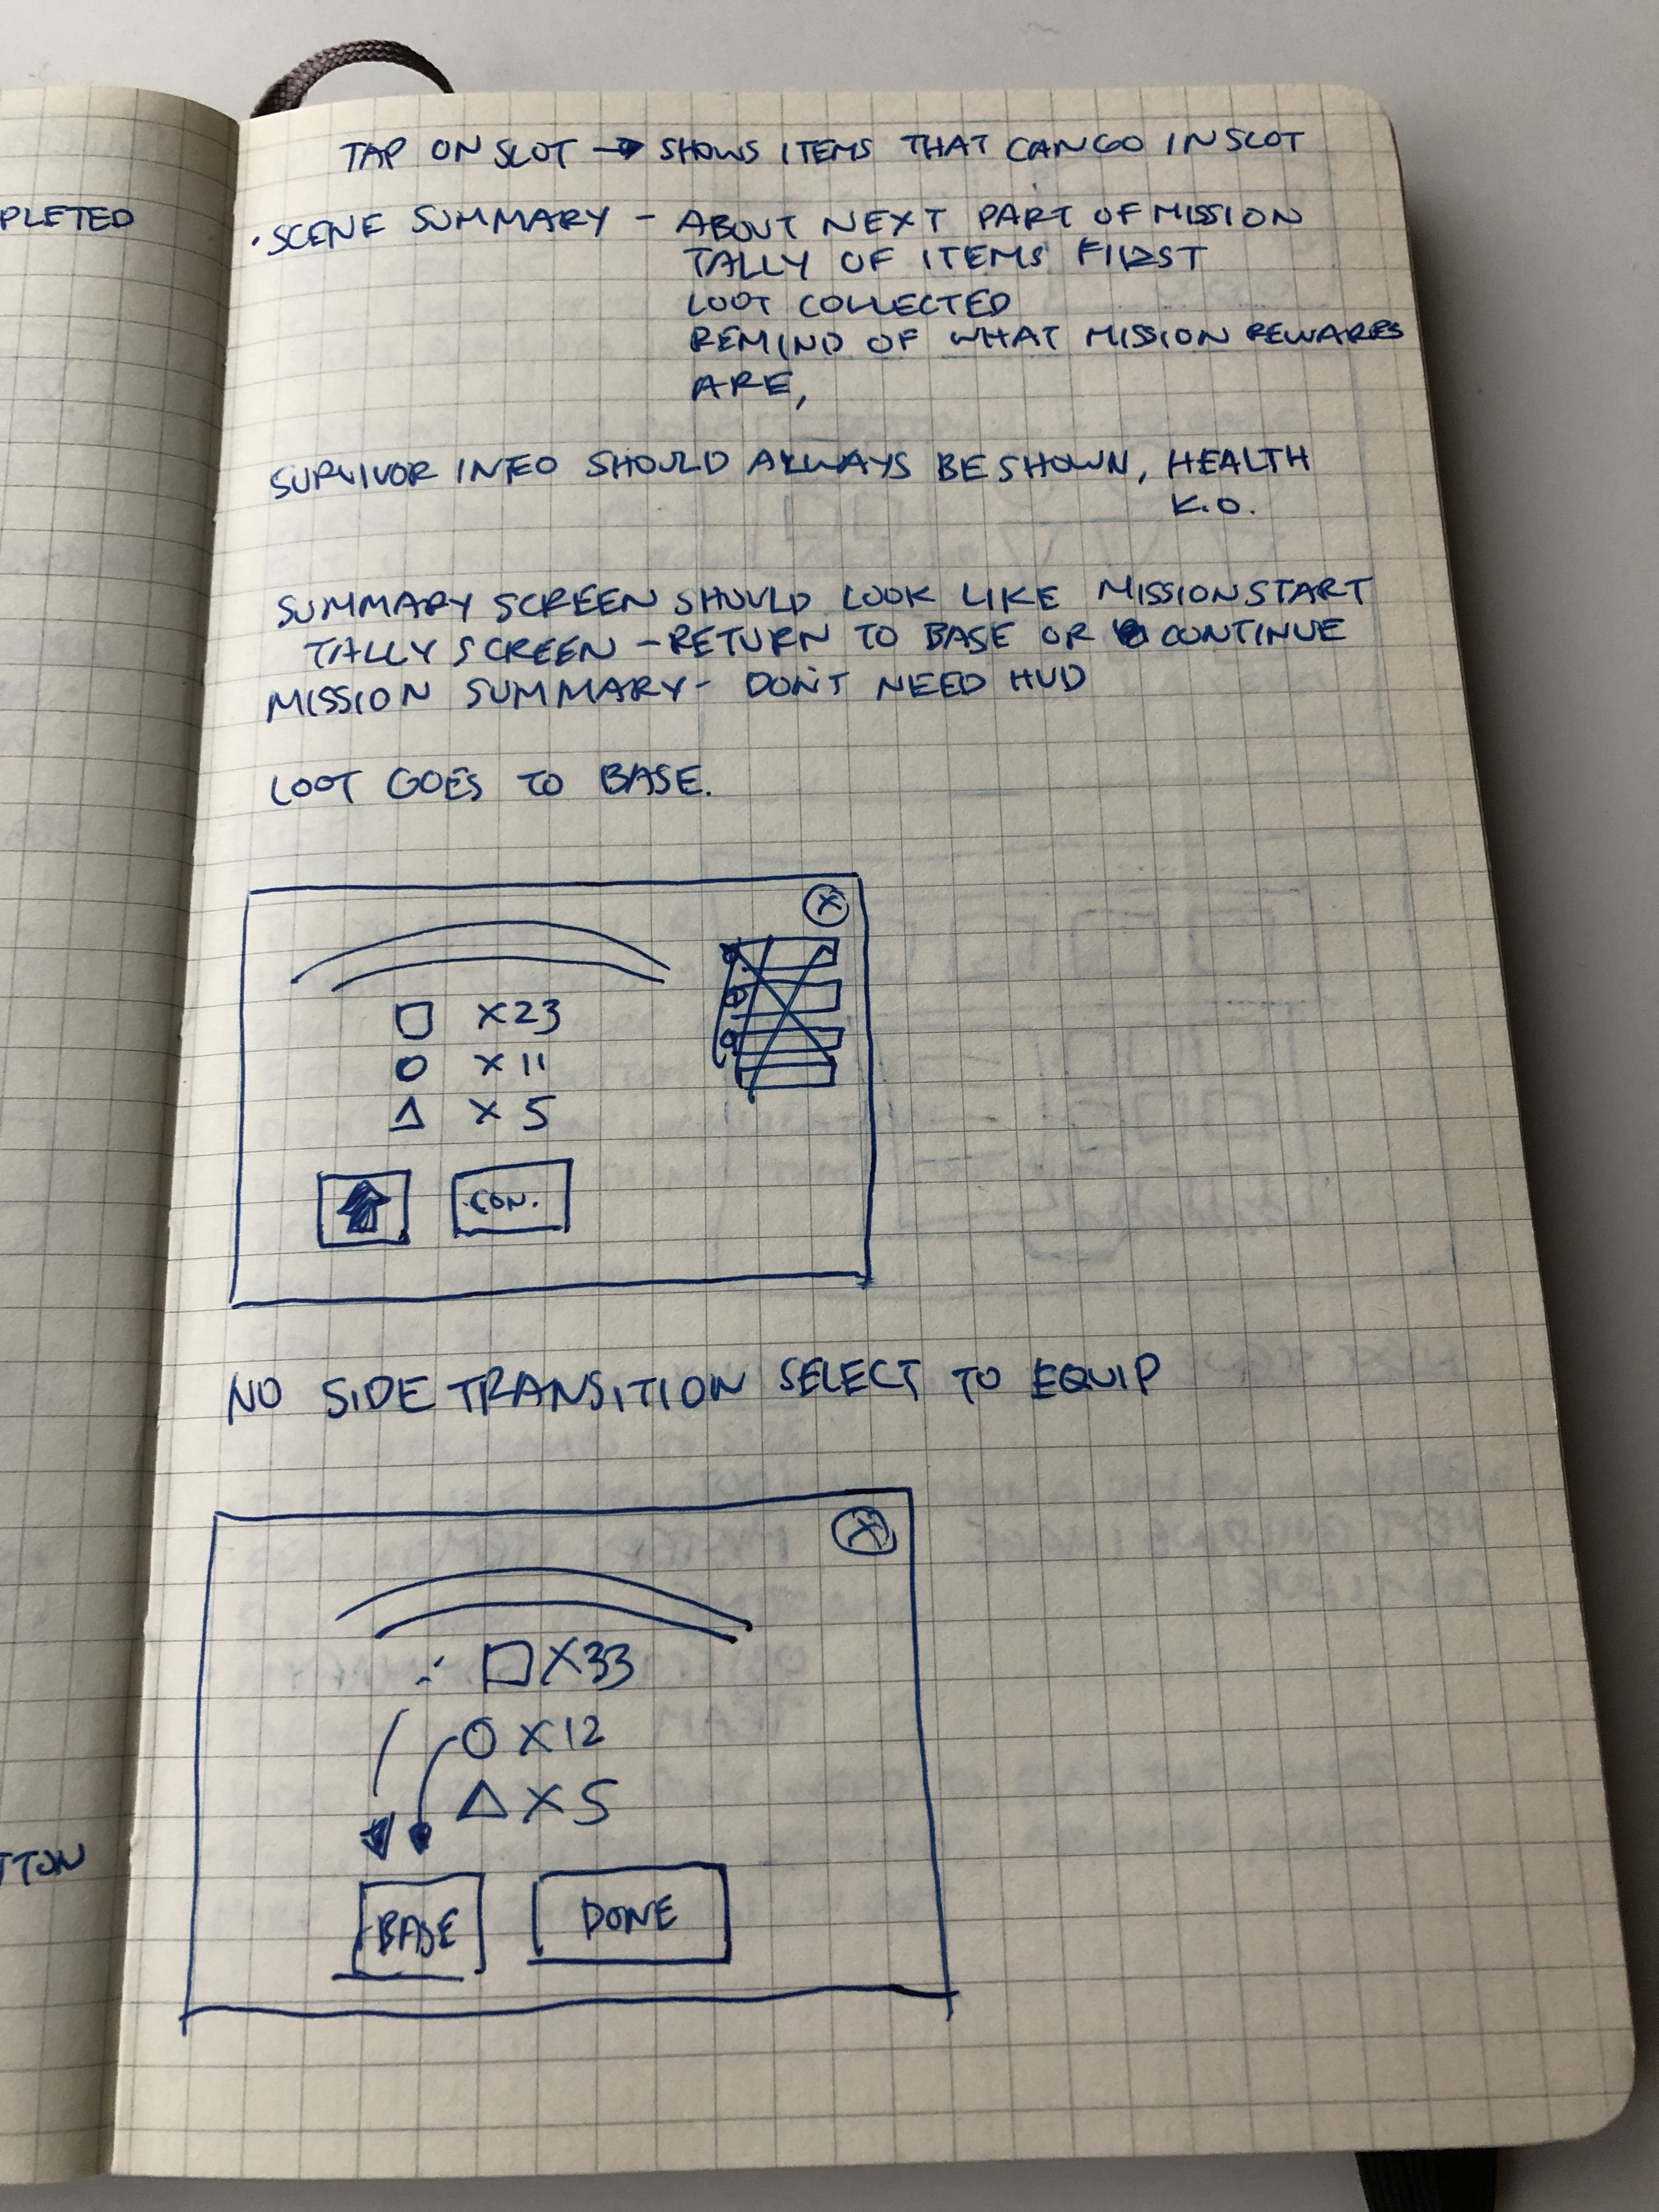 TAP ON SLOT → SHOWS ITEMS THAT CAN GO IN SLOT
PLETED
• SCENE SUMMARY - ABOUT NEXT PART OF MISSION
TALLY OF ITEMS FIRST
LOOT COLLECTED
REMIND OF WHAT MISSION REWARDS
ARE,
SURVIVOR INFO SHOULD ALWAYS BE SHOWN, HEALTH
K.O.
SUMMARY SCREEN SHOULD LOOK LIKE MISSION START
TALLY SCREEN - RETURN TO BASE OR CONTINUE
MISSION SUMMARY - DON'T NEED HUD
LOOT GOES TO BASE.
X
X23
X11
X5
CON.
NO SIDE TRANSITION SELECT TO EQUIP
X
X33
X12
X5
TTON
BASE
DONE